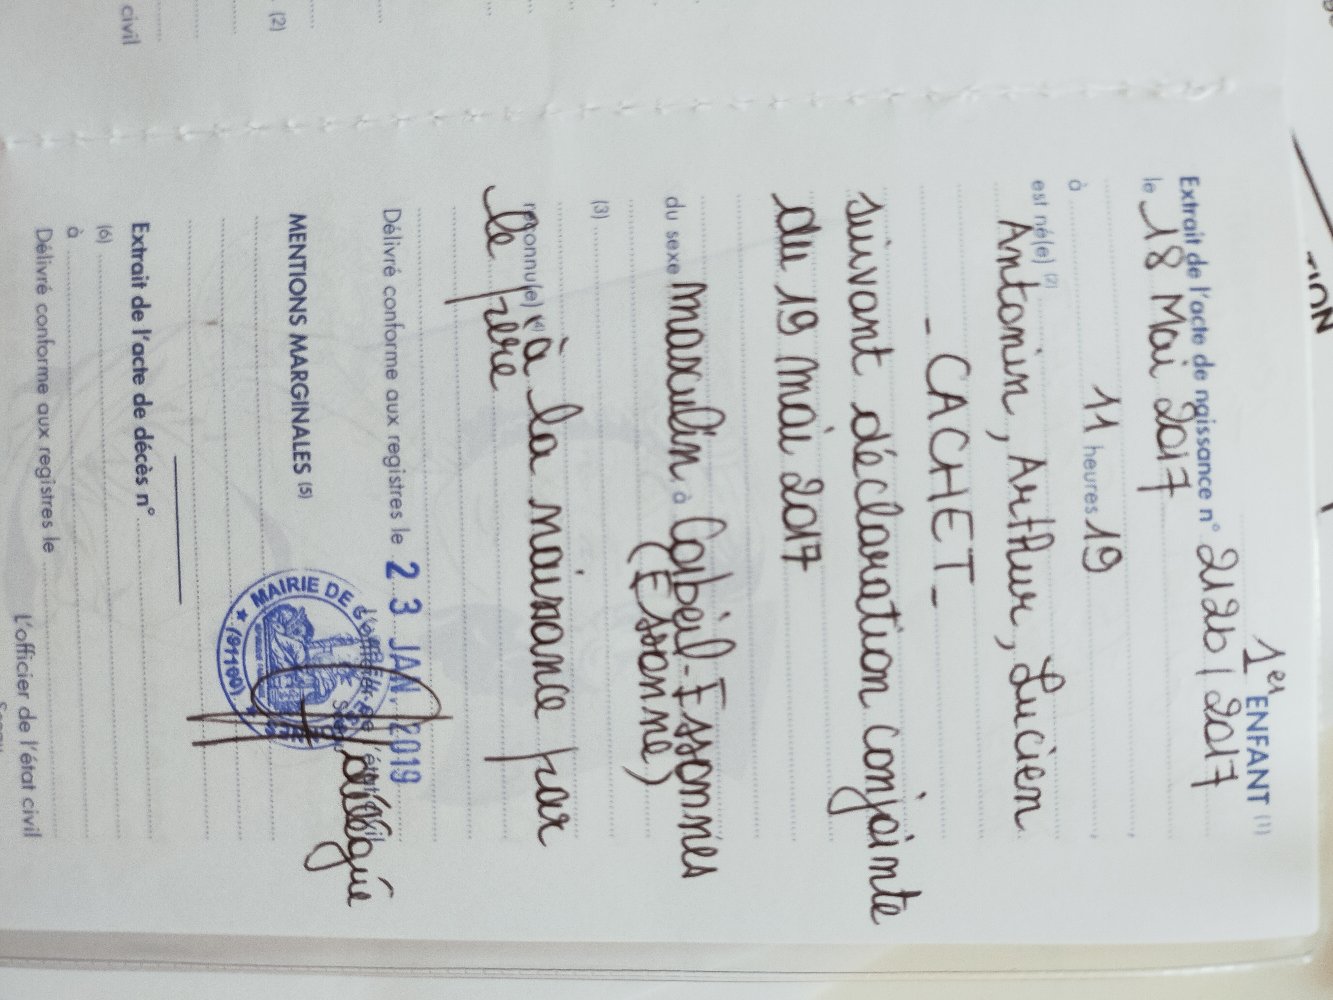 1er ENFANT (1)
Extrait de l'acte de naissance n° 2126 / 2017
le 18 Mai 2017
à 11 heures 19
est né(e) (2)
Antonin, Arthur, Lucien
- CACHET -
suivant déclaration conjointe
du 19 mai 2017
du sexe masculin à Corbeil-Essonnes
(Essonne)
(3)
reconnu(e) (4) à la naissance par
le père
Délivré conforme aux registres le 23 JAN. 2019
L'officier de l'état civil
délégué
MAIRIE DE
(91100)
MENTIONS MARGINALES (5)
Extrait de l'acte de décès n°
(6)
à
Délivré conforme aux registres le
L'officier de l'état civil
Sceau
(2)
civil
ION